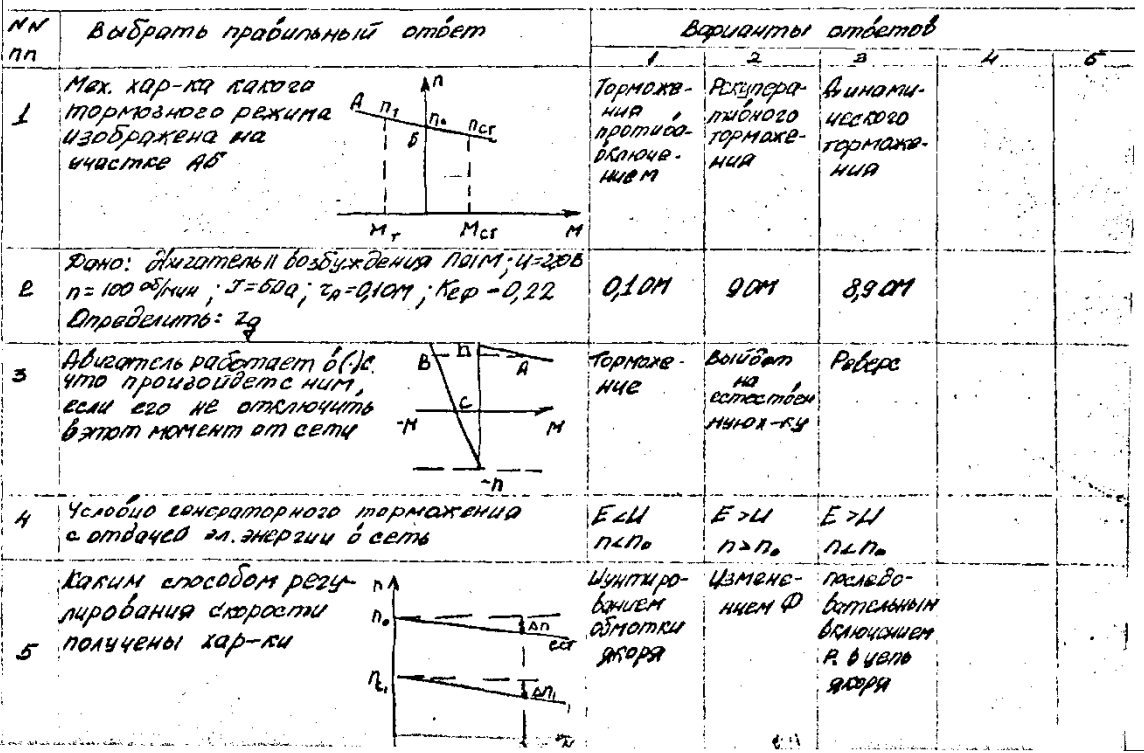 NN Выбрать правильный ответ Варианты ответов
пп 1 2 3 4 5
1 Мех. хар-ка какого
тормозного режима
изображена на
участке АБ
n
A n₁ n₀ nст
Б
Mт Mст M
Торможе-
ния
противо-
включе-
нием
Рекупера-
тивного
торможе-
ния
Динами-
ческого
торможе-
ния
2 Дано: двигатель II возбуждения U=220в
n=100 об/мин; J=50а; =0,1ом; Kеф-0,22
Определить: rg
0,1ом 9ом 8,9ом
3 Двигатель работает в(·)с.
что произойдет с ним,
если его не отключить
в этот момент от сети
B n A
C
-M M
-n
Торможе-
ние
Выйдет
на
естествен
ную х-ку
Реверс
4 Условие генераторного торможения
с отдачей эл. энергии в сеть
E<U E>U E>U
n<n₀ n>n₀ n<n₀
5 Каким способом регу-
лирования скорости
получены хар-ки
n
n₀ Δn
ест
Δn₁
Шунтиро-
ванием
обмотки
якоря
Измене-
нием Ф
последо-
вательным
включением
R в цепь
якоря